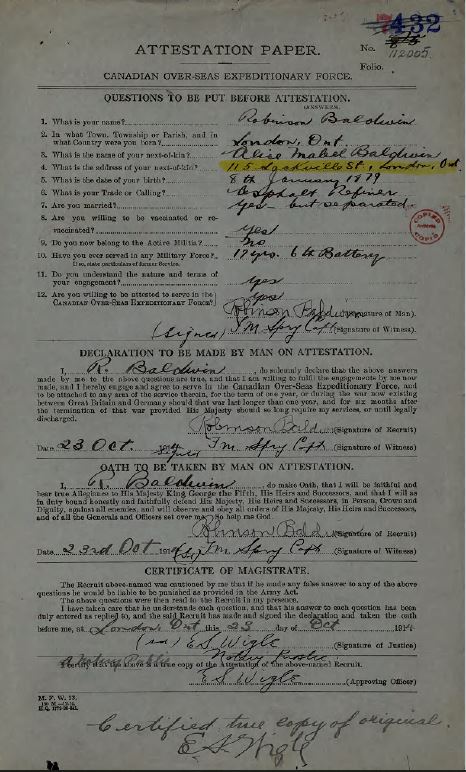 432
ATTESTATION PAPER.
No.
112005
Folio.
CANADIAN OVER-SEAS EXPEDITIONARY FORCE.
QUESTIONS TO BE PUT BEFORE ATTESTATION.
(ANSWERS).
1. What is your name? Robinson Baldwin
2. In what Town, Township or Parish, and in
what Country were you born? London, Ont
3. What is the name of your next-of-kin? Alice Mabel Baldwin
4. What is the address of your next-of-kin? 115 St., London, Ont
5. What is the date of your birth? 8th January 1879
6. What is your Trade or Calling? Asphalt Refiner
7. Are you married? yes - but separated
8. Are you willing to be vaccinated or re-
vaccinated? yes
9. Do you now belong to the Active Militia? No
10. Have you ever served in any Military Force? 19 yrs. 6th Battery
If so, state particulars of former Service.
11. Do you understand the nature and terms of
your engagement? yes
12. Are you willing to be attested to serve in the
CANADIAN OVER-SEAS EXPEDITIONARY FORCE? yes
Robinson Baldwin (Signature of Man).
(Signed) T M Spry Capt (Signature of Witness).
DECLARATION TO BE MADE BY MAN ON ATTESTATION.
I, R. Baldwin, do solemnly declare that the above answers
made by me to the above questions are true, and that I am willing to fulfil the engagements by me now
made, and I hereby engage and agree to serve in the Canadian Over-Seas Expeditionary Force, and
to be attached to any arm of the service therein, for the term of one year, or during the war now existing
between Great Britain and Germany should that war last longer than one year, and for six months after
the termination of that war provided His Majesty should so long require my services, or until legally
discharged.
Robinson Baldwin (Signature of Recruit)
Date 23 Oct. 191 T M Spry Capt (Signature of Witness)
OATH TO BE TAKEN BY MAN ON ATTESTATION.
I, R Baldwin, do make Oath, that I will be faithful and
bear true Allegiance to His Majesty King George the Fifth, His Heirs and Successors, and that I will as
in duty bound honestly and faithfully defend His Majesty, His Heirs and Successors, in Person, Crown and
Dignity, against all enemies, and will observe and obey all orders of His Majesty, His Heirs and Successors,
and of all the Generals and Officers set over me. So help me God.
Robinson Baldwin (Signature of Recruit)
Date 23rd Oct 1914 T M Spry Capt (Signature of Witness)
CERTIFICATE OF MAGISTRATE.
The Recruit above-named was cautioned by me that if he made any false answer to any of the above
questions he would be liable to be punished as provided in the Army Act.
The above questions were then read to the Recruit in my presence.
I have taken care that he understands each question, and that his answer to each question has been
duly entered as replied to, and the said Recruit has made and signed the declaration and taken the oath
before me, at London, Ont this 23 day of Oct 1914.
E S Wigle (Signature of Justice)
I certify that the above is a true copy of the Attestation of the above-named Recruit.
E S Wigle (Approving Officer)
M. F. W. 23.
Certified true copy of original.
E S Wigle